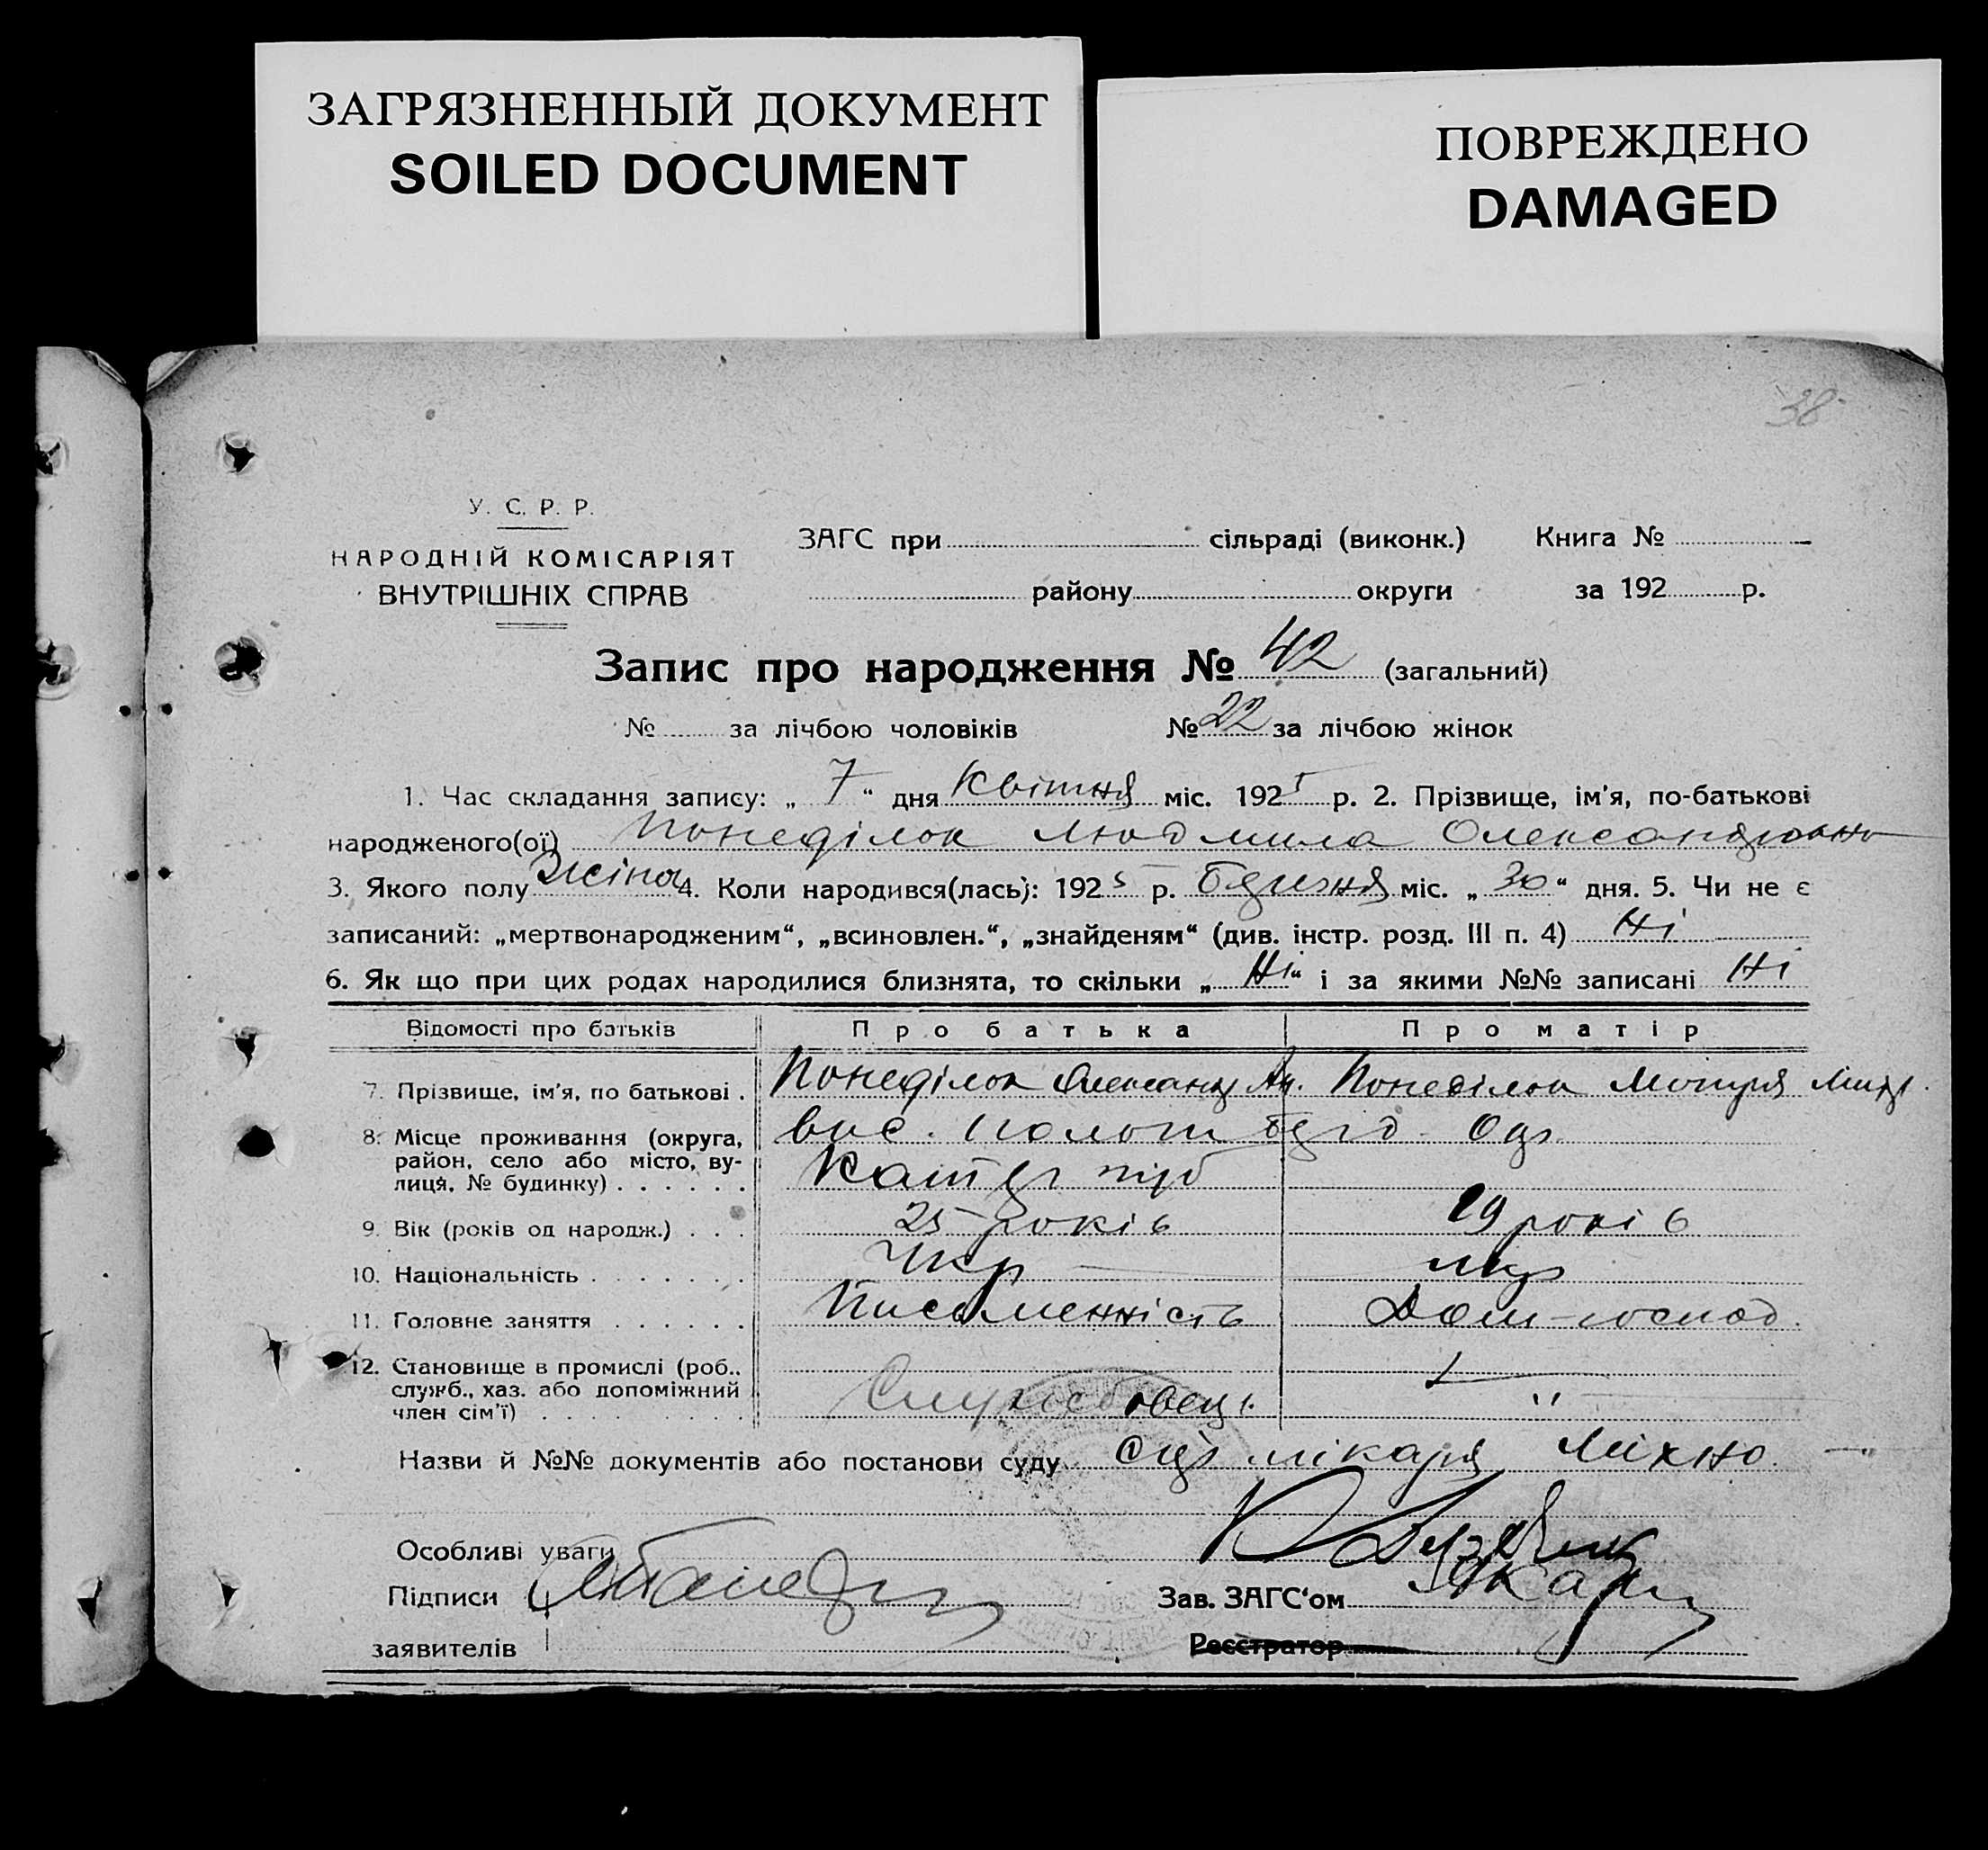 ЗАГРЯЗНЕННЫЙ ДОКУМЕНТ
SOILED DOCUMENT
ПОВРЕЖДЕНО
DAMAGED
38
У. С. Р. Р.
НАРОДНІЙ КОМІСАРІЯТ
ВНУТРІШНІХ СПРАВ
ЗАГС при сільраді (виконк.) Книга №
району округи за 192 р.
Запис про народження № 42 (загальний)
№ за лічбою чоловіків № 22 за лічбою жінок
1. Час складання запису: „ 7 “ дня Квітня міс. 1925 р. 2. Прізвище, ім'я, по-батькові
народженого(ої) Понеділок Людмила Олександровно
3. Якого полу Жіноч 4. Коли народився(лась): 1925 р. Березня міс. „ 30 “ дня. 5. Чи не є
записаний: „мертвонародженим“, „всиновлен.“, „знайденям“ (див. інстр. розд. III п. 4) Ні
6. Як що при цих родах народилися близнята, то скільки „ Ні “ і за якими №№ записані Ні
Відомості про батьків Про батька Про матір
7. Прізвище, ім'я, по батькові . Понеділок Олександ Ан. Понеділок Мотря
8. Місце проживання (округа,
район, село або місто, ву-
лиця, № будинку) . . . . . .
9. Вік (років од народж.) . . . 25 років 29 років
10. Національність . . . . . . . Укр Укр
11. Головне заняття . . . . . . Письменність Дом-господ.
12. Становище в промислі (роб.,
служб., хаз. або допоміжний
член сім'ї) . . . . . . . . . Службовець "
Назви й №№ документів або постанови суду лікаря Міхно
Особливі уваги
Підписи Зав. ЗАГС'ом
заявителів Реєстратор